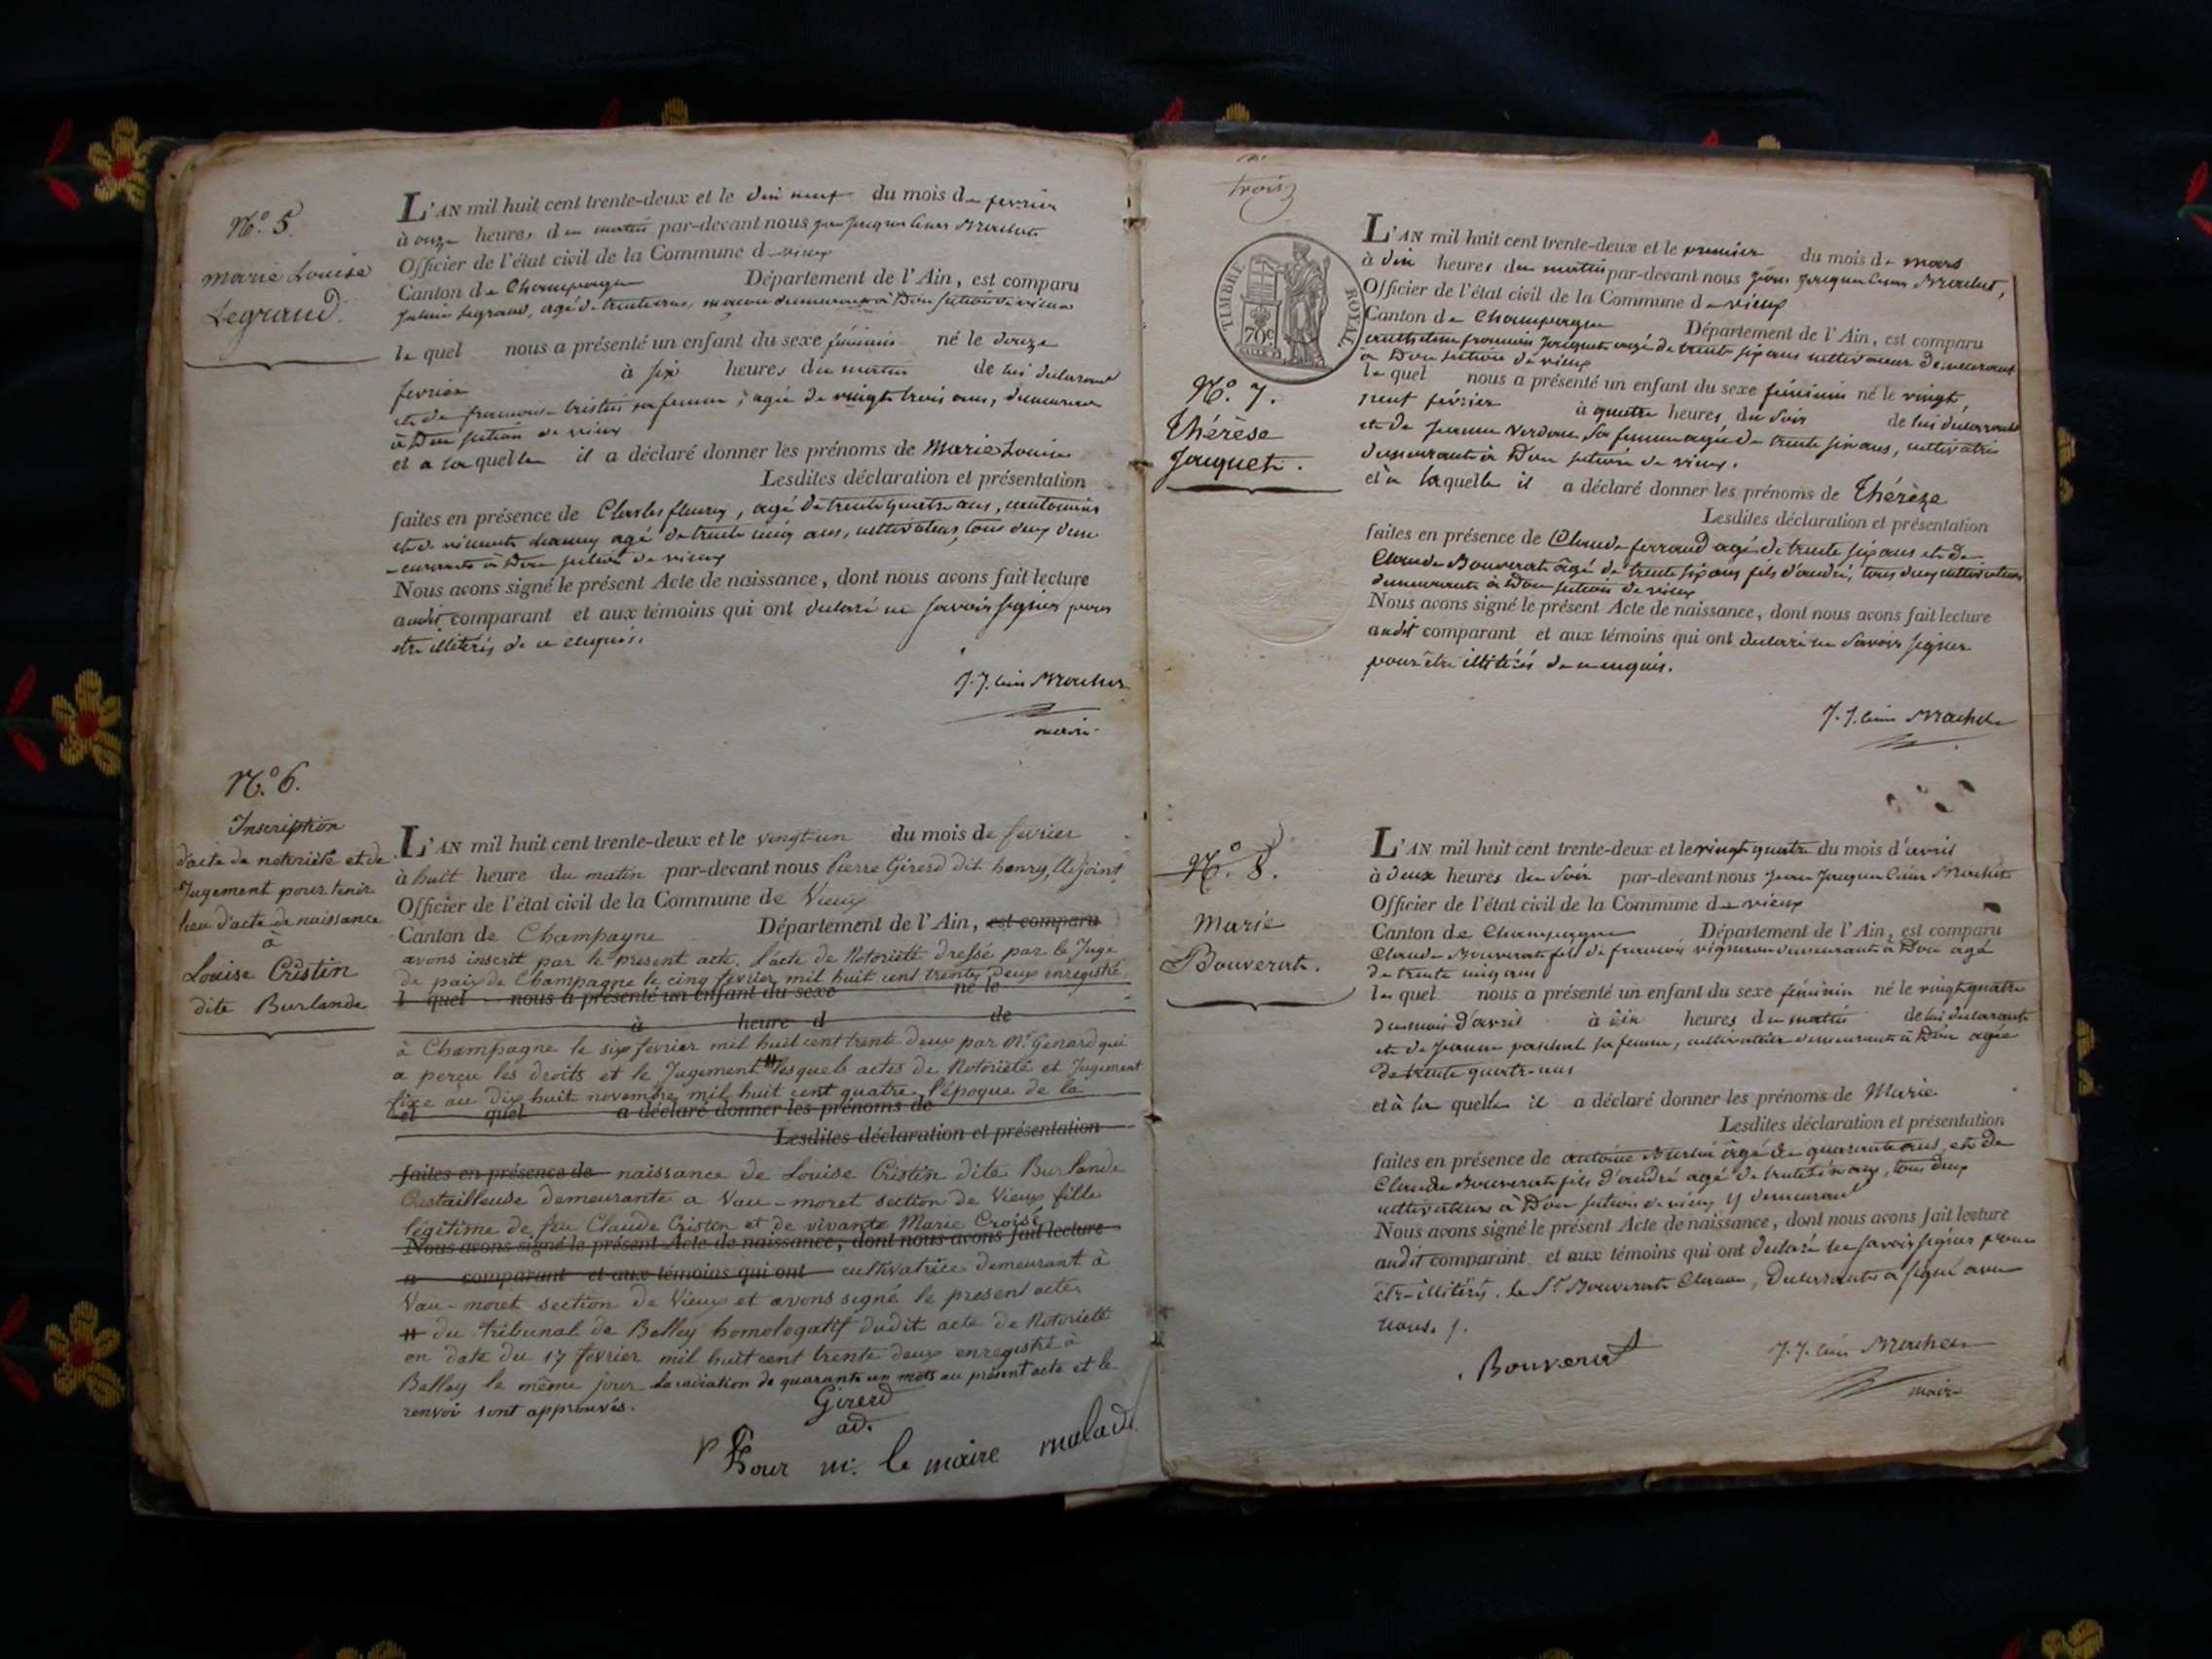 N.º 5.
Marie Louise
Legrand.
L'AN mil huit cent trente-deux et le dix neuf du mois de fevrier
à onze heures du matin par-devant nous jean jacques
Officier de l'état civil de la Commune de vieux
Canton de Champagne Département de l'Ain, est comparu
Legrand, agé de trente ans, demeurant à Don section de vieux
le quel nous a présenté un enfant du sexe féminin né le douze
fevrier à six heures du matin de lui declarant
et de francoise Cristin sa femme, agée de vingt trois ans, demeurant
à Don section de vieux
et a la quelle il a déclaré donner les prénoms de Marie Louise
Lesdites déclaration et présentation
faites en présence de Charles fleury, agé de trente quatre ans,
et de vincent agé de trente cinq ans, cultivateur, tous deux dem
-eurants à Don section de vieux
Nous avons signé le présent Acte de naissance, dont nous avons fait lecture
audit comparant et aux témoins qui ont declaré ne savoir signer pour
etre illitérés de ce enquis.
J. J.
maire
N.º 6.
Inscription
d'acte de notoriété et de
Jugement pour tenir
lieu d'acte de naissance
à
Louise Cristin
dite Burlande
L'AN mil huit cent trente-deux et le vingt-un du mois de fevrier
à huit heure du matin par-devant nous Pierre Girerd dit henry, Adjoint
Officier de l'état civil de la Commune de Vieux
Canton de Champagne Département de l'Ain, est comparu
avons inscrit par le présent acte, l'acte de Notoriété dressé par le Juge
de paix de Champagne le cinq fevrier mil huit cent trente deux enregistré
l quel nous a présenté un enfant du sexe né le
à heure d de
à Champagne le six fevrier mil huit cent trente deux par Mr. Genard qui
a perçu les droits et le Jugement # lesquels actes de Notoriété et Jugement
fixe au dix huit novembre mil huit cent quatre l'époque de la
et quel a déclaré donner les prénoms de
Lesdites déclaration et présentation
faites en présence de naissance de Louise Cristin dite Burlande
demeurante a Vau-moret section de Vieux fille
légitime de feu Claude Cristin et de vivante Marie Croisé
Nous avons signé le présent Acte de naissance, dont nous avons fait lecture
a comparant et aux témoins qui ont cultivatrice demeurant à
Vau-moret section de Vieux et avons signé le present acte.
# du tribunal de Belley homologatif dudit acte de Notoriété
en date du 17 fevrier mil huit cent trente deux enregistré à
Belley le même jour La radiation de quarante un mots au présent acte et le
renvoi sont approuvés.
Girerd
ad.
Pour m. le maire malade
trois
TIMBRE ROYAL
70c
N.º 7.
Thérèse
Jacquet.
L'AN mil huit cent trente-deux et le premier du mois de mars
à dix heures du matin par-devant nous jean jacques
Officier de l'état civil de la Commune de vieux
Canton de Champagne Département de l'Ain, est comparu
francois Jacquet agé de trente six ans cultivateur demeurant
à Don section de vieux
le quel nous a présenté un enfant du sexe féminin né le vingt
neuf février à quatre heures du soir de lui declarant
et de Jeanne sa femme agée de trente six ans, cultivatrice
demeurant à Don section de vieux.
et à la quelle il a déclaré donner les prénoms de Thérèze
Lesdites déclaration et présentation
faites en présence de Claude ferraud agé de trente six ans et de
Claude Bouverat agé de trente six ans fils d'andré, tous deux cultivateurs
demeurants à Don section de vieux
Nous avons signé le présent Acte de naissance, dont nous avons fait lecture
audit comparant et aux témoins qui ont declaré ne savoir signer
pour être illitérés de ce enquis.
J. J.
N.º 8.
Marie
Bouverat.
L'AN mil huit cent trente-deux et le vingt quatre du mois d'avril
à deux heures du soir par-devant nous Jean Jacques
Officier de l'état civil de la Commune de vieux
Canton de Champagne Département de l'Ain, est comparu
Claude Bouverat fils de francois vigneron demeurant à Don agé
de trente cinq ans
le quel nous a présenté un enfant du sexe féminin né le vingt quatre
du mois d'avril à dix heures du matin de lui declarant
et de Jeanne paschal sa femme, cultivatrice demeurant à Don agée
de trente quatre ans
et à la quelle il a déclaré donner les prénoms de Marie
Lesdites déclaration et présentation
faites en présence de antoine agé de quarante ans, et de
Claude Bouverat fils d'andré agé de trente six ans, tous deux
cultivateurs à Don section de vieux y demeurant
Nous avons signé le présent Acte de naissance, dont nous avons fait lecture
audit comparant et aux témoins qui ont declaré ne savoir signer pour
être illitérés. le Sr. Bouverat Claude, declarant a signé avec
nous.
Bouverat
J. J.
maire